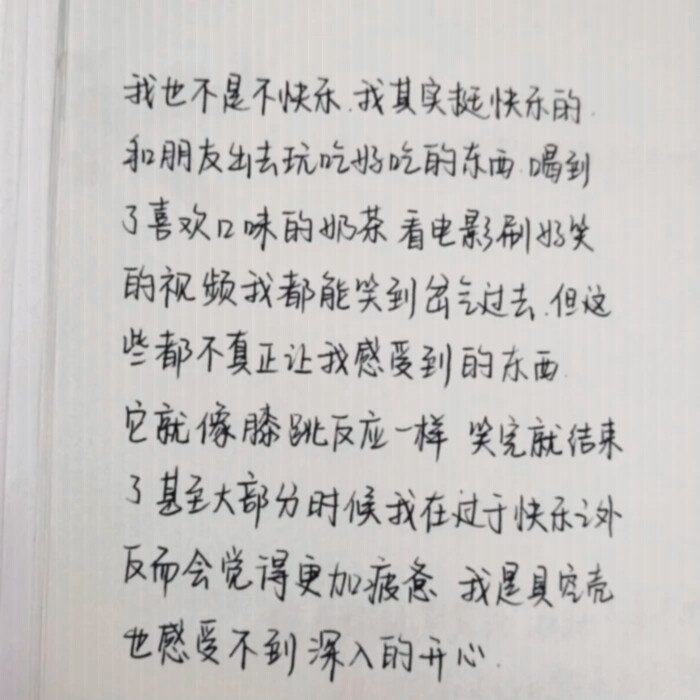 我也不是不快乐.我其实挺快乐的.
和朋友出去玩吃好吃的东西.喝到
了喜欢口味的奶茶 看电影刷好笑
的视频我都能笑到岔气过去.但这
些都不真正让我感受到的东西.
它就像膝跳反应一样 笑完就结束
了甚至大部分时候我在过于快乐之外
反而会觉得更加疲惫 我是具空壳
也感受不到深入的开心.